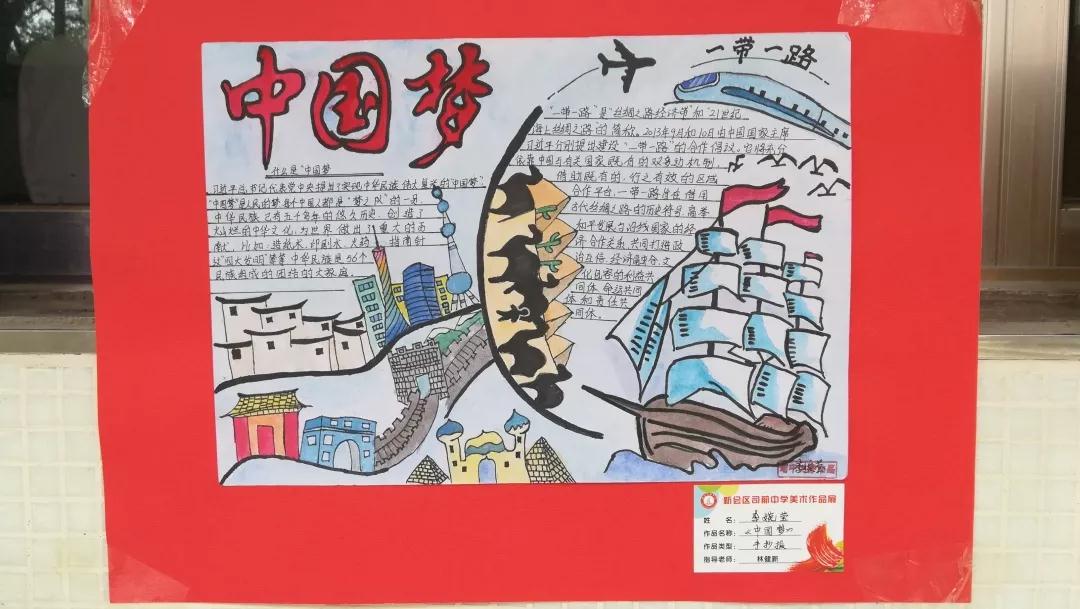 中国梦
什么是"中国梦"
习近平总书记代表党中央提出了实现中华民族伟大复兴的"中国梦".
"中国梦"是人民的梦每个中国人都是"梦之队"的一员.
中华民族已有五千多年的悠久历史,创造了
灿烂的中华文化,为世界做出了重大的贡
献,比如:造纸术、印刷术、火药、指南针
这"四大发明"等等中华民族是56个
民族组成的团结的大家庭.
一带一路
"一带一路"是"丝绸之路经济带"和"21世纪
海上丝绸之路"的简称。2013年9月和10月由中国国家主席
习近平分别提出建设"一带一路"的合作倡议。它将充分
依靠中国与有关国家既有的双多边机制,
借助既有的,行之有效的区域
合作平台,一带一路旨在借用
古代丝绸之路的历史符号高举
和平发展
与沿线国家的经
济合作关系,共同打造政
治互信、经济融合、文
化包容的利益共
同体、命运共同
体和责任共
同体。
新会区司前中学美术作品展
姓 名: 李婉莹
作品名称: 《中国梦》
作品类型: 手抄报
指导老师: 林健新